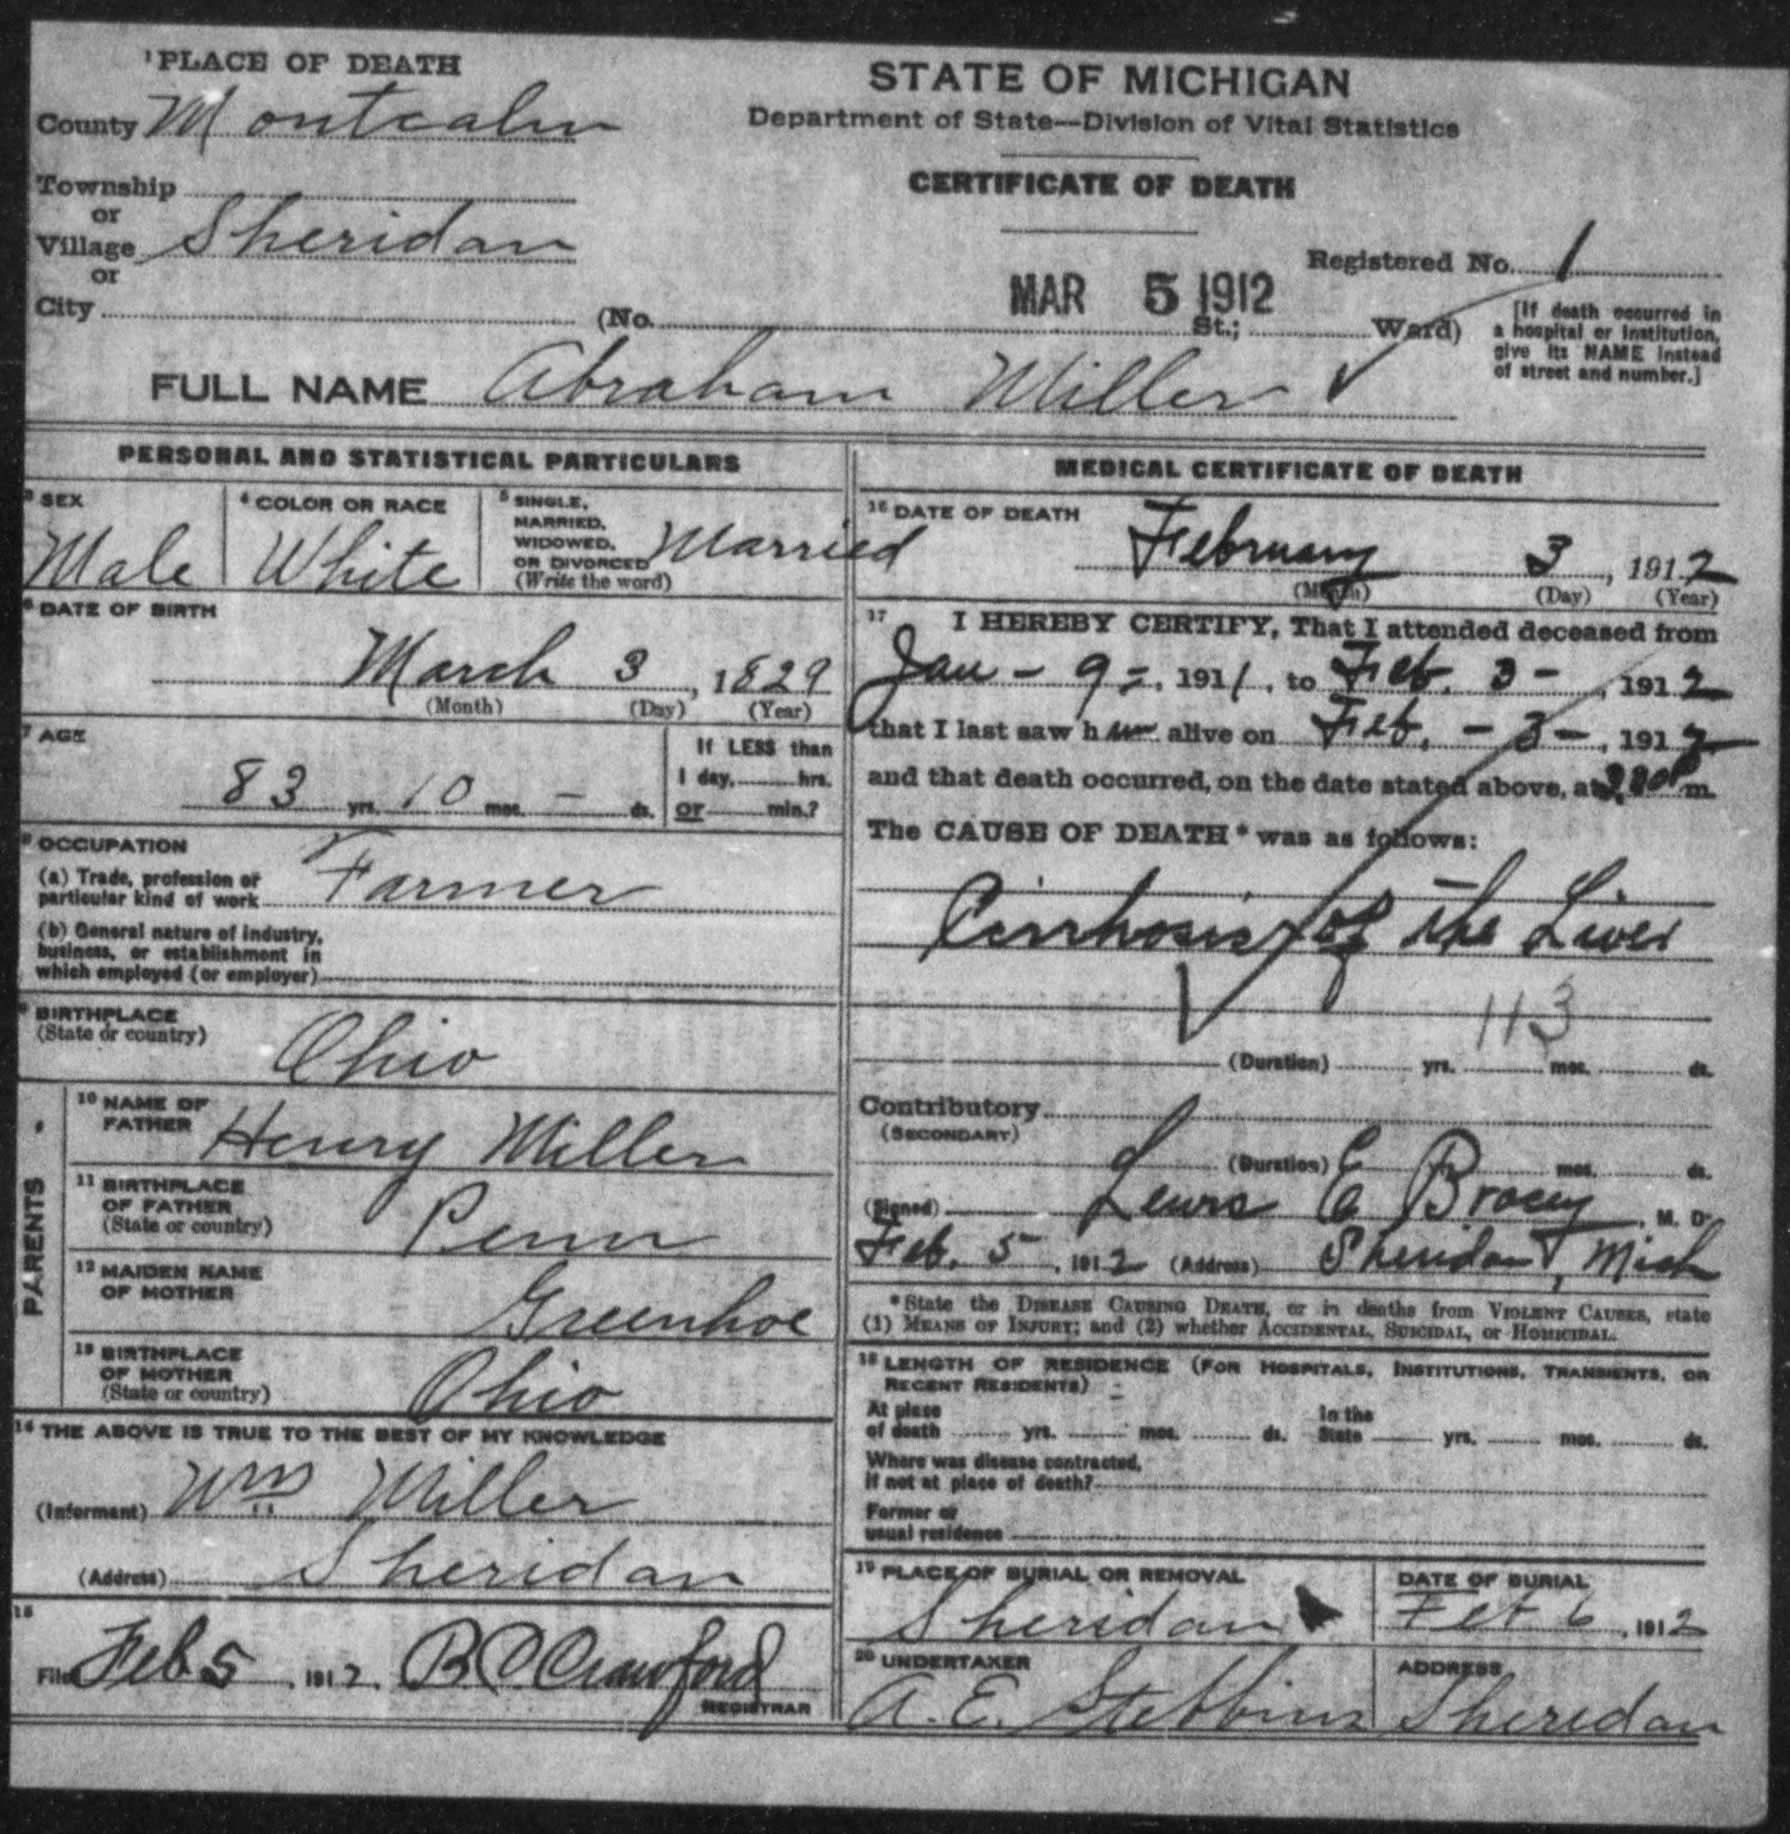 1 PLACE OF DEATH
County Montcalm
Township
or
Village Sheridan
or
City (No. St.; Ward)
STATE OF MICHIGAN
Department of State—Division of Vital Statistics
CERTIFICATE OF DEATH
Registered No. 1
MAR 5 1912
[If death occurred in
a hospital or institution,
give its NAME instead
of street and number.]
FULL NAME Abraham Miller
PERSONAL AND STATISTICAL PARTICULARS
3 SEX
Male
4 COLOR OR RACE
White
5 SINGLE,
MARRIED,
WIDOWED,
OR DIVORCED
(Write the word)
Married
6 DATE OF BIRTH
March 3, 1829
(Month) (Day) (Year)
7 AGE
83 yrs. 10 mos. – ds.
If LESS than
1 day, hrs.
or min.?
8 OCCUPATION
(a) Trade, profession or
particular kind of work Farmer
(b) General nature of industry,
business, or establishment in
which employed (or employer)
9 BIRTHPLACE
(State or country)
Ohio
PARENTS
10 NAME OF
FATHER
Henry Miller
11 BIRTHPLACE
OF FATHER
(State or country)
Penn
12 MAIDEN NAME
OF MOTHER
Greenhoe
13 BIRTHPLACE
OF MOTHER
(State or country)
Ohio
14 THE ABOVE IS TRUE TO THE BEST OF MY KNOWLEDGE
(Informant) Wm Miller
(Address) Sheridan
15
Filed Feb 5, 1912. B C Crawford
REGISTRAR
MEDICAL CERTIFICATE OF DEATH
16 DATE OF DEATH
February 3, 1912
(Month) (Day) (Year)
17 I HEREBY CERTIFY, That I attended deceased from
Jan – 9 –, 1911, to Feb. 3 –, 1912
that I last saw him alive on Feb. – 3 –, 1912
and that death occurred, on the date stated above, at m.
The CAUSE OF DEATH* was as follows:
Cirrhosis of the Liver
113
(Duration) yrs. mos. ds.
Contributory
(SECONDARY)
(Duration) mos. ds.
(Signed) Lewis E Bracey, M. D.
Feb. 5, 1912 (Address) Sheridan, Mich
*State the DISEASE CAUSING DEATH, or in deaths from VIOLENT CAUSES, state
(1) MEANS OF INJURY; and (2) whether ACCIDENTAL, SUICIDAL, or HOMICIDAL.
18 LENGTH OF RESIDENCE (FOR HOSPITALS, INSTITUTIONS, TRANSIENTS, OR
RECENT RESIDENTS)
At place
of death yrs. mos. ds.
In the
State yrs. mos. ds.
Where was disease contracted,
if not at place of death?
Former or
usual residence
19 PLACE OF BURIAL OR REMOVAL
Sheridan
DATE OF BURIAL
Feb 6, 1912
20 UNDERTAKER
A. E. Stebbins
ADDRESS
Sheridan